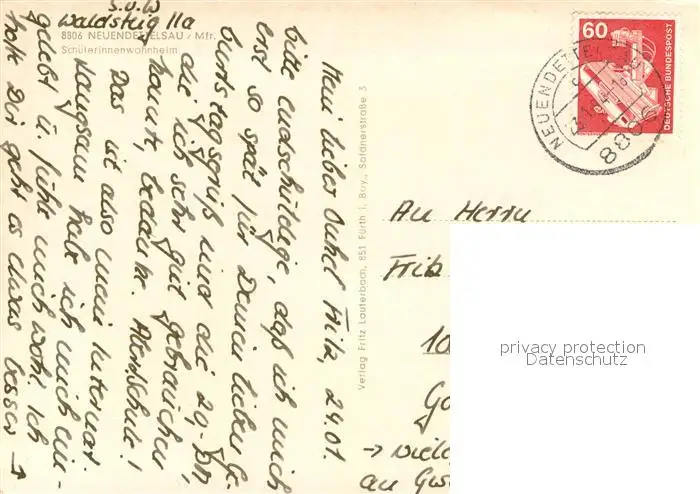 S.o.W
Waldsteig 11a
8806 NEUENDETTELSAU / Mfr.
Schülerinnenwohnheim
Mein lieber Onkel Fritz, 24.01.
bitte entschuldige, daß ich mich
erst so spät für Deinen lieben Ge-
burtstagsgruß und die 20,- DM,
die ich sehr gut gebrauchen
konnte, bedanke.
Das ist also mein Internat.
Langsam habe ich mich ein-
gelebt u. fühle mich wohl. Ich
hoffe Dir geht es etwas besser →
Verlag Fritz Lauterbach, 851 Fürth i. Bay., Soldnerstraße 3
60
DEUTSCHE BUNDESPOST
NEUENDETTE
8806
An Herrn
Fritz
10
Go
→ viele
an
privacy protection
Datenschutz